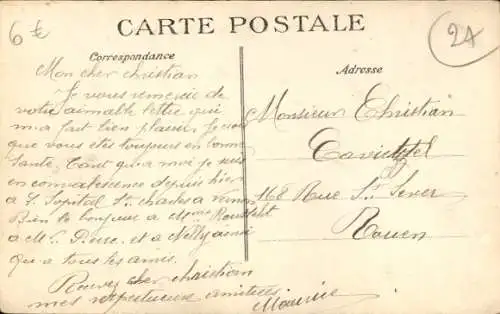 6 €
CARTE POSTALE
24
Correspondance
Adresse
Mon cher christian
Je vous remercie de
votre aimable lettre qui
m'a fait bien plaisir Je vois
que vous etes toujours en bonne
Santé, Tant qu'a moi je suis
en convalescence depuis hier
a l'hopital St charles a
Bien le bonjour a Mme Rousselet
a Mr Pierre et a Nelly ainsi
que a tous les amis.
Recevez cher christian
mes respectueuses amitiées.
Maurice
Monsieur Christian
168 Rue St Sever
Rouen